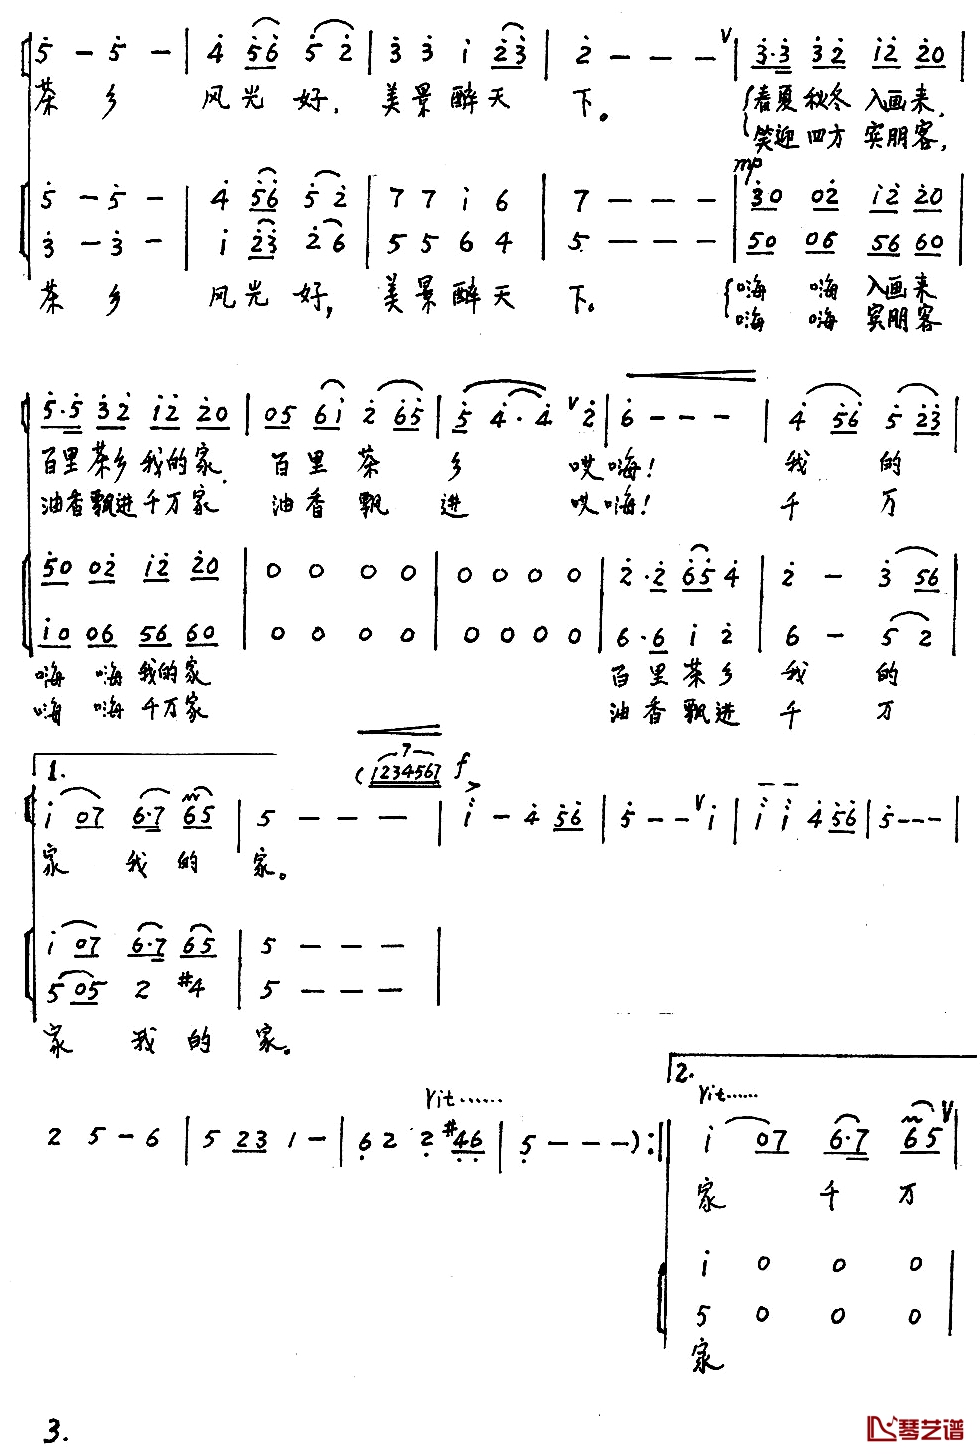 5 - 5 - | 4 56 5 2 | 3 3 i 23 | 2 - - - V | 3·3 32 i2 20 |
茶 乡 风 光 好, 美 景 醉 天 下。 春夏秋冬 入画来,
笑迎四方 宾朋客,
mp
5 - 5 - | 4 56 5 2 | 7 7 i 6 | 7 - - - | 30 02 i2 20 |
3 - 3 - | i 23 2 6 | 5 5 6 4 | 5 - - - | 50 06 56 60 |
茶 乡 风 光 好, 美 景 醉 天 下。 嗨 嗨 入画来
嗨 嗨 宾朋客
5·5 32 i2 20 | 05 6i 2 65 | 5 4·4 V 2 | 6 - - - | 4 56 5 23 |
百里茶乡 我的家, 百 里 茶 乡 哎 嗨! 我 的
油香飘进 千万家 油 香 飘 进 哎 嗨! 千 万
50 02 i2 20 | 0 0 0 0 | 0 0 0 0 | 2·2 65 4 | 2 - 3 56 |
i0 06 56 60 | 0 0 0 0 | 0 0 0 0 | 6·6 i 2 | 6 - 5 2 |
嗨 嗨 我的家 百 里 茶 乡 我 的
嗨 嗨 千万家 油 香 飘 进 千 万
1. 7 (i234567 f
i 07 6·7 65 | 5 - - - | i - 4 56 | 5 - - V i | i i 4 56 | 5 - - - |
家 我 的 家。
i 07 6·7 65 | 5 - - - |
5 05 2 #4 | 5 - - - |
家 我 的 家。
rit……
2 5 - 6 | 5 23 1 - | 6 2 2 #46 | 5 - - - ) :||
2. rit……
i 07 6·7 65 V |
家 千 万
i 0 0 0 |
5 0 0 0 |
家
3.
琴艺谱